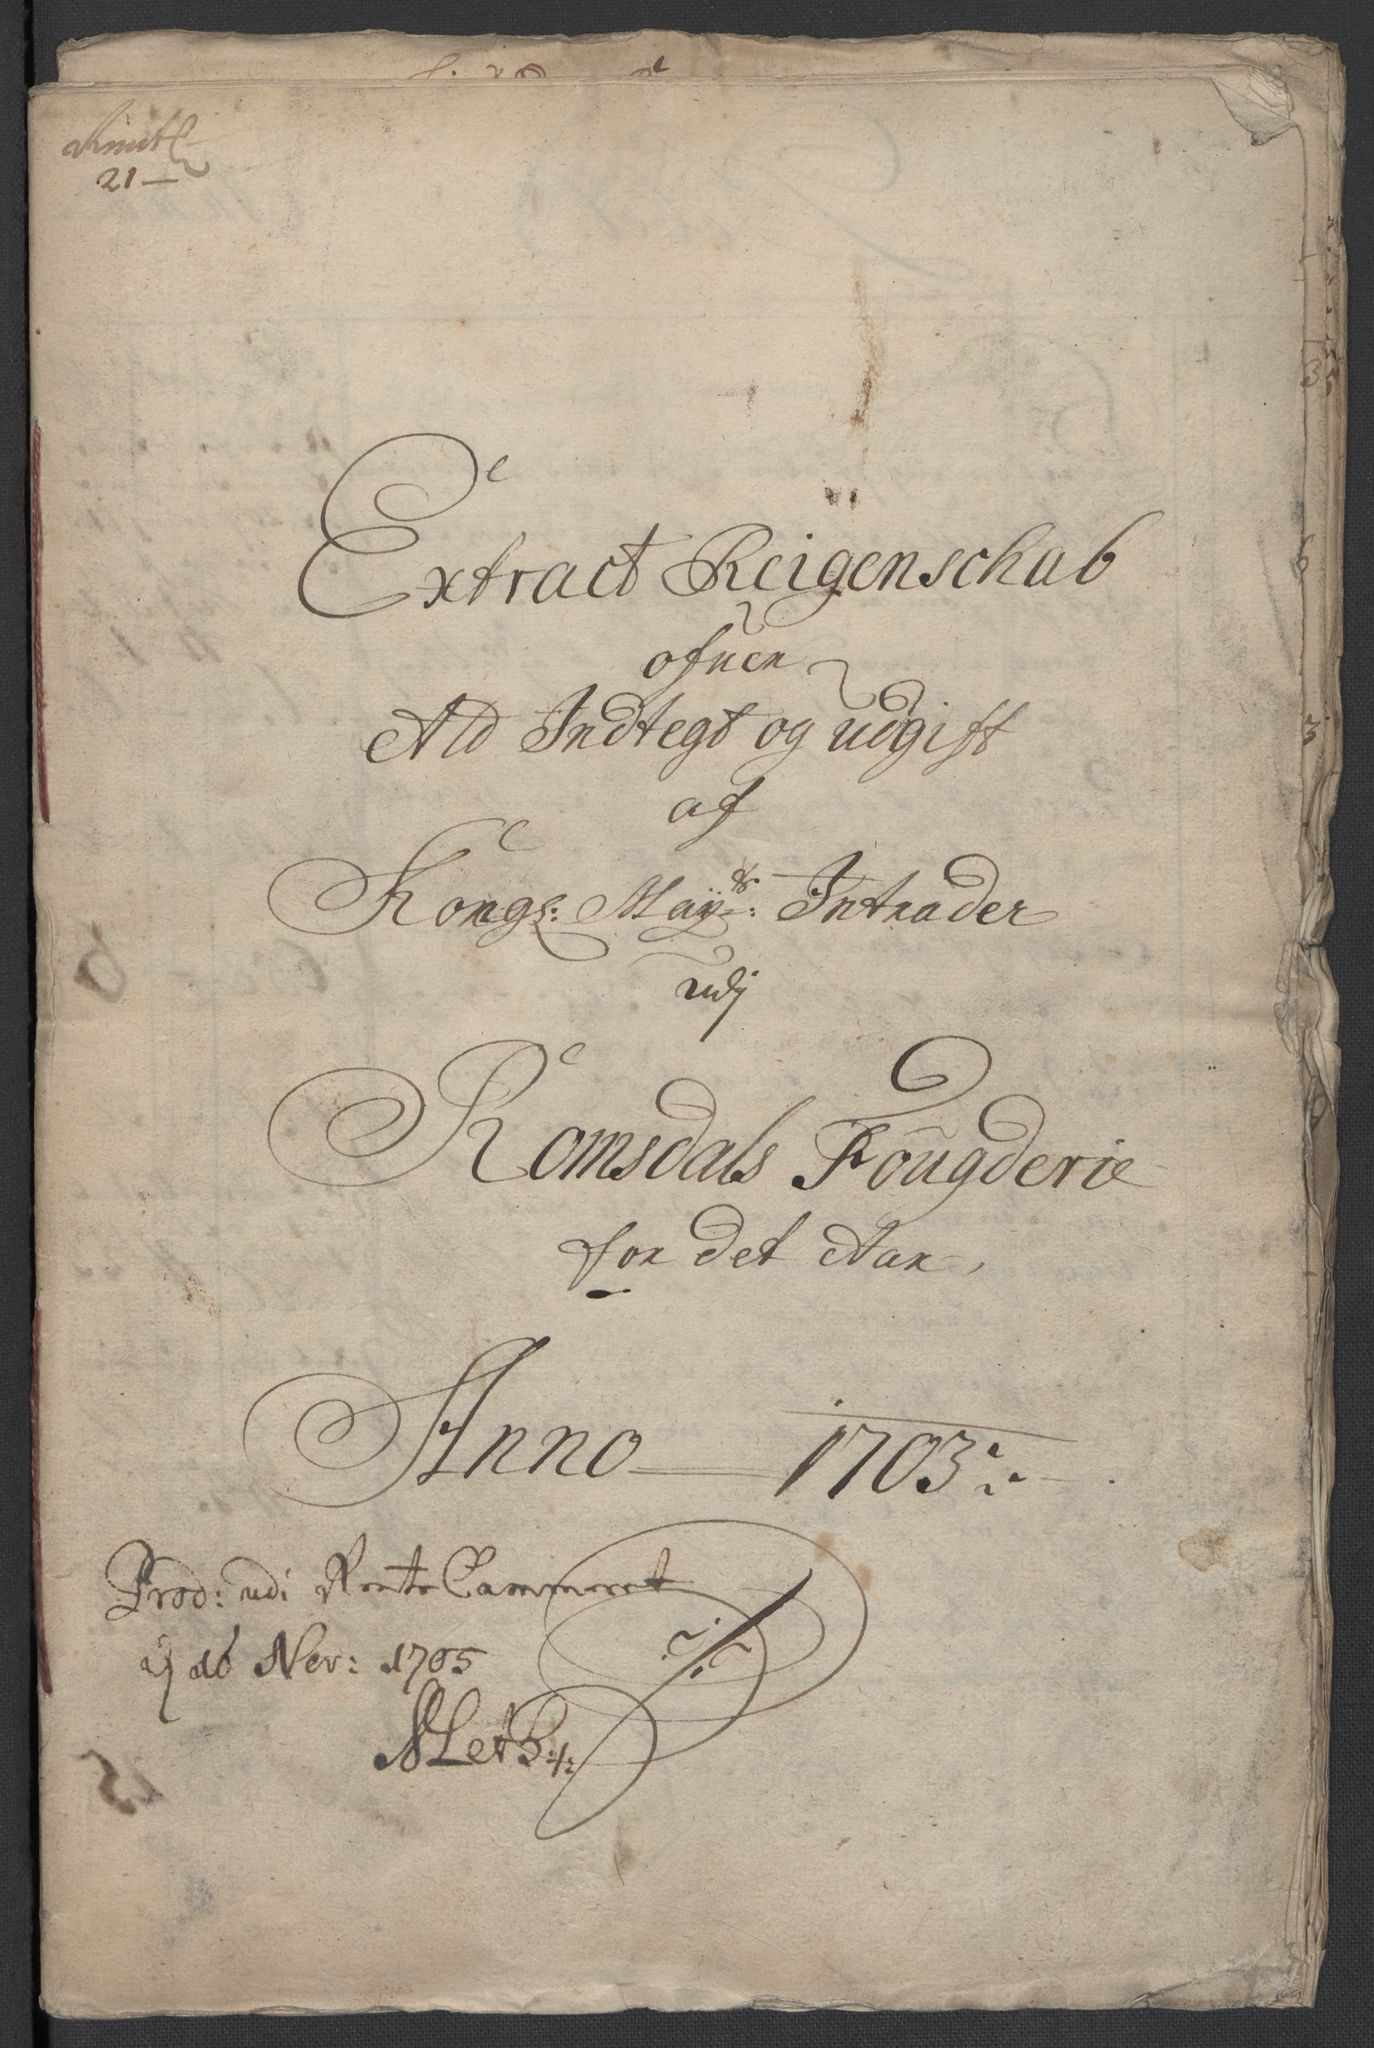 21 —
Extract Reigenschab
ofuer
Ald Indtegt og udgift
af
Kongs: May:ts Intrader
udj
Romsdals Fougderie
for det Aar,
Anno — 1703
Prod: udi Rente Cammeret
16 Nov: 1705